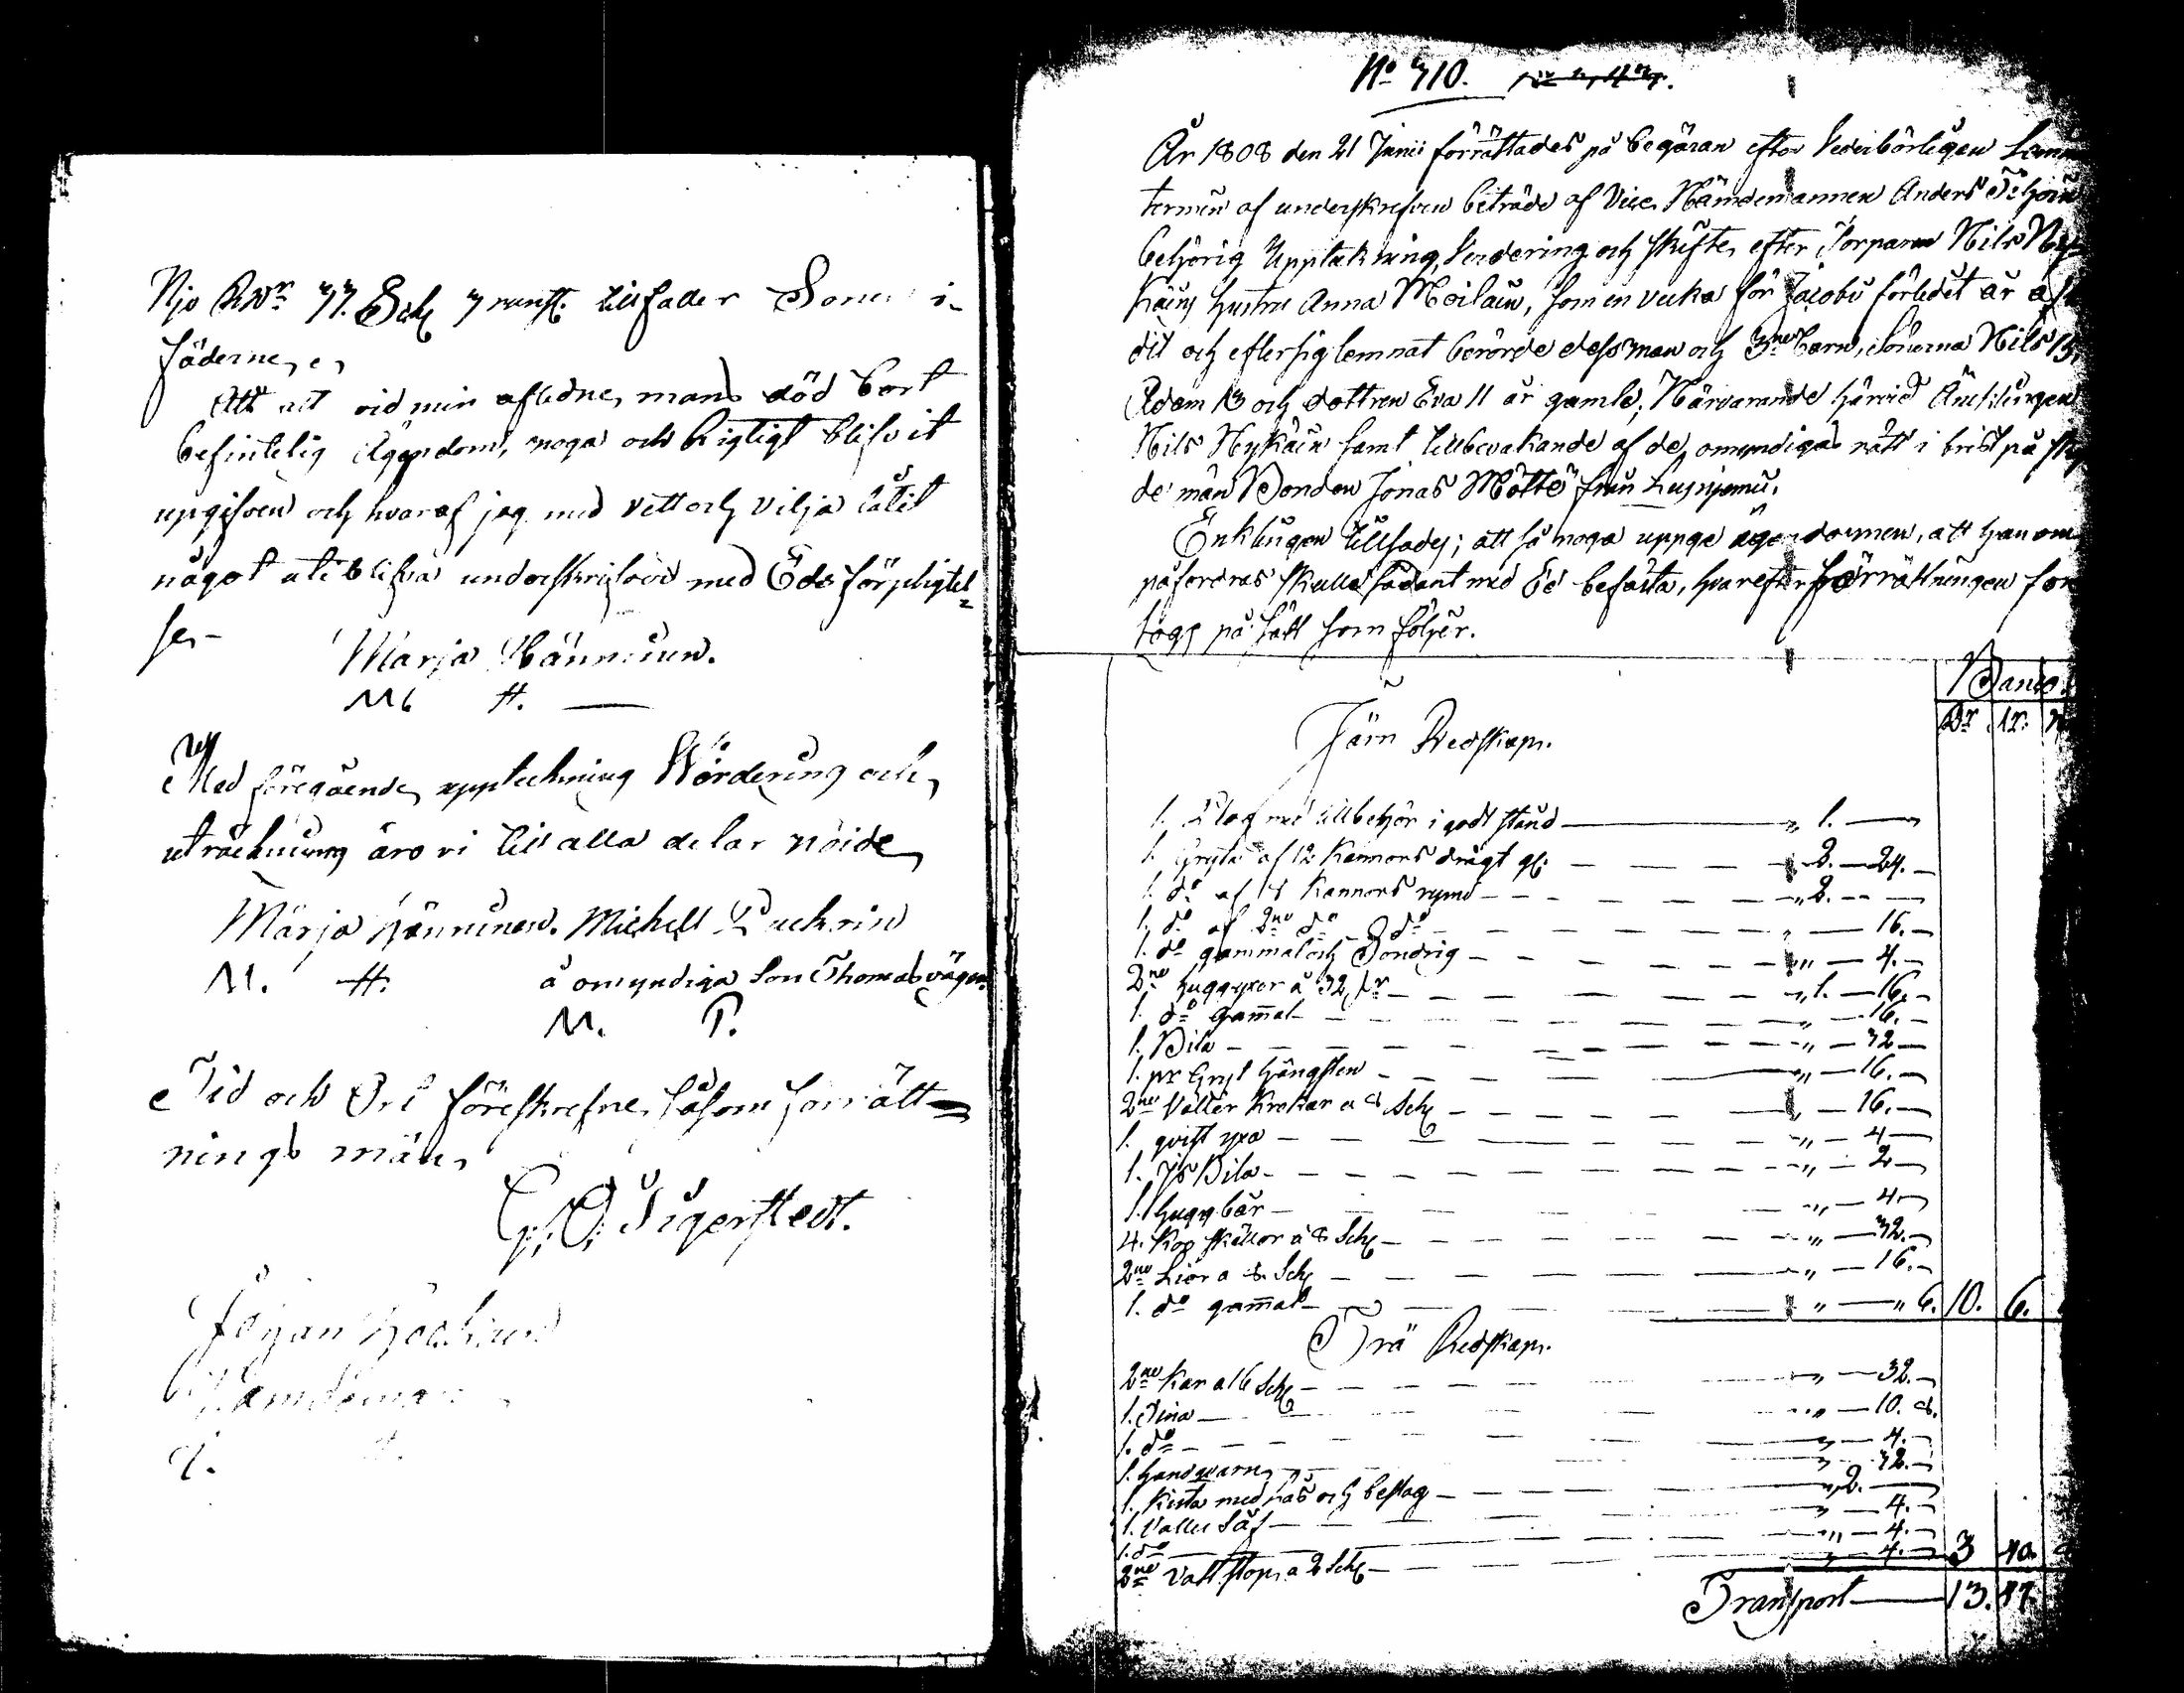 Nio Rdr 77. Sch 7 runst. tillfaller Sonen i
fäderne,
Att alt vid min afledne mans död bort
befintelig Ägendom, noga och Rigtigt blifvit
upgifven och hvaraf jag med vett och vilja låtit
något utiblifva underskrifves med Eds förpligtel=
se,
Marja Hänninen.
M H.
Med föregående uppteckning Wördering och
uträckning äro vi till alla delar nöide
Marja Hänninen. Michell Puckrin
M. H. å omyndiga Son Thomas vägn.
M. P.
Tid och Ort föreskrefne, såsom förrätt=
nings män,
Sigerstedt.
Johan
Nämdeman
No 710.
År 1808 den 21 Junii förrättades på begäran efter Vederbörligen
termin af underskrefven biträde af Vice Nämdemannen Anders
behörig Upptekning, Verdering och skifte, efter Torparen Nils Ny-
käins hustru Anna Moilain, som en vecka för Jacobi förledit år af
dit och efter sig lemnat berörde dess man och 3ne barn, Sönerna Nils 15
Adam 13 och dottren Eva 11 år gamle; Närvarande härvid Äncklingen
Nils Nykäin samt till bevakande af de omyndigas rätt i brist på
de män Bonden Jonas Mötte från
Enklingen tillsades; att så noga uppge ägendommen, att han om
påfordras skulle sådant med Ed befästa, hvarefter förrättningen för
togs på sätt som följer.
Banco.
Rdr sr.
Järn Redskap.
1. Plog med tillbehör i godt stånd — „ 1. —
1. Gryta af 12 Kannors drägt gl: — 2. — 24. —
1. do af 8 Kannors rymd — „ 2. — —
1. do af 2ne do do — „ — 16. —
1. do gammal och Söndrig — „ — 4. —
2ne huggyxor à 32 sr — „ 1. — 16. —
1. do gam̄al — „ — 16. —
1. Bila — „ — 32 —
1. pr Gryt hängslen — „ — 16. —
2ne Valler Krokar a 8 Sch — „ — 16. —
1. qvist yxa — „ — 4 —
1. Js Bila — „ — 2 —
1. hugg bär — „ — 4 —
4. Kop skällor à 8 Sch — „ — 32. —
2ne Liör a 8 Sch — „ — 16. —
1. do gam̄al — „ — „ 6. 10. 6.
Trä Redskap.
2ne Kar a 16 Sch — „ — 32. —
1. Tina — „ — 10. 8.
1. do — „ — 4. —
1. handqvarn, — „ 32. —
1. Kista med lås och beslag — „ 2. —
1. Vatten Såf — „ — 4. —
1. do — „ — 4. —
2ne Vatt stop, a 2 Sch — „ — 4. — 3 40
Transport — 13. 47.